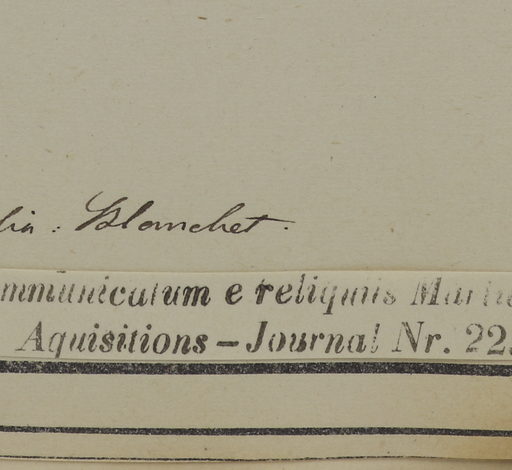 hia. Blanchet.
mmunicatum e reliquiis Martie
Aquisitions – Journal Nr. 225